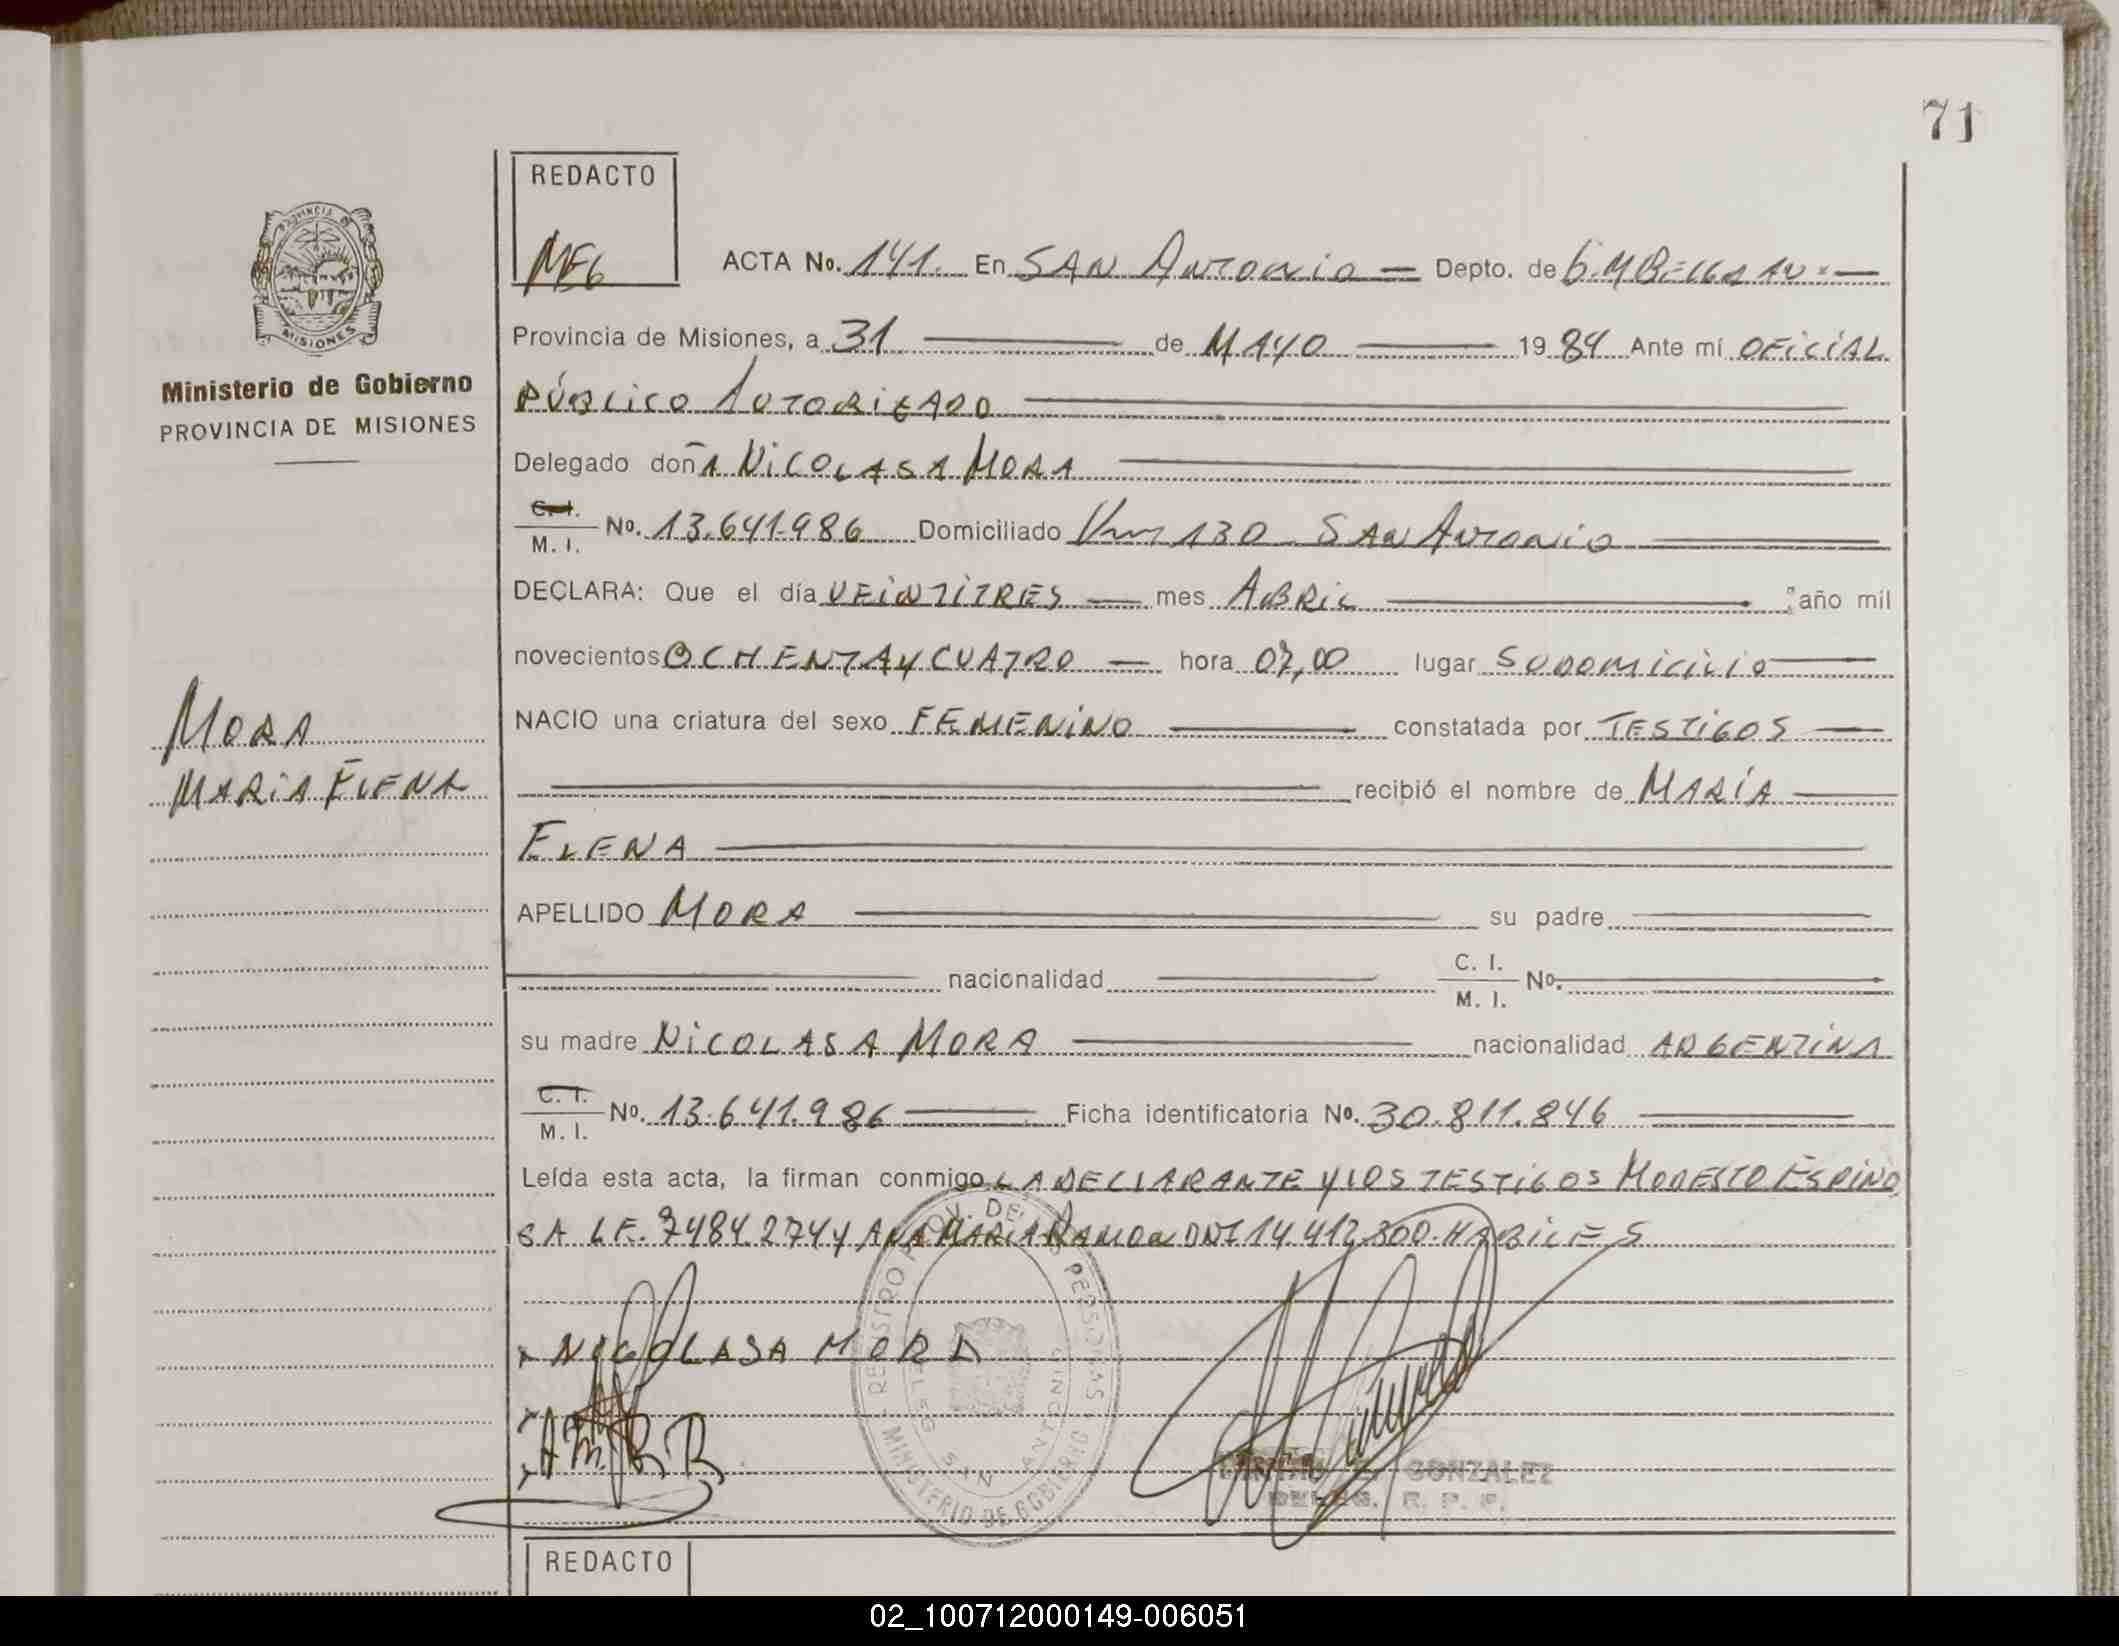 71
REDACTO
MEG
ACTA No. 141. En SAN ANTONIO Depto. de G.MBELGRANO
PROVINCIA
MISIONES
Ministerio de Gobierno
PROVINCIA DE MISIONES
Provincia de Misiones, a 31 de MAYO 1984 Ante mí OFICIAL
PÚBLICO AUTORIZADO
Delegado doñA NICOLASA MORA
C. I.
M. I. No. 13.641.986 Domiciliado Km 130 SAN ANTONIO
DECLARA: Que el día VEINTITRES mes ABRIL año mil
novecientos OCHENTAYCUATRO hora 07,00 lugar SUDOMICILIO
NACIO una criatura del sexo FEMENINO constatada por TESTIGOS
MORA
MARIA ELENA
recibió el nombre de MARÍA
ELENA
APELLIDO MORA su padre
nacionalidad C. I.
M. I. No.
su madre NICOLASA MORA nacionalidad ARGENTINA
C. I.
M. I. No. 13.641.986 Ficha identificatoria No. 30.811.846
Leída esta acta, la firman conmigo LA DECLARANTE Y LOS TESTIGOS MODESTO ESPINO
SA LE. 7484.274 Y ANA MARIA RAMON DNI 14.412.300. HABILES
NICOLASA MORA
REGISTRO PROV. DE LAS PERSONAS
DELEG. SAN ANTONIO
MINISTERIO DE GOBIERNO
GONZALEZ
DELEG. R. P. P.
REDACTO
02_100712000149-006051